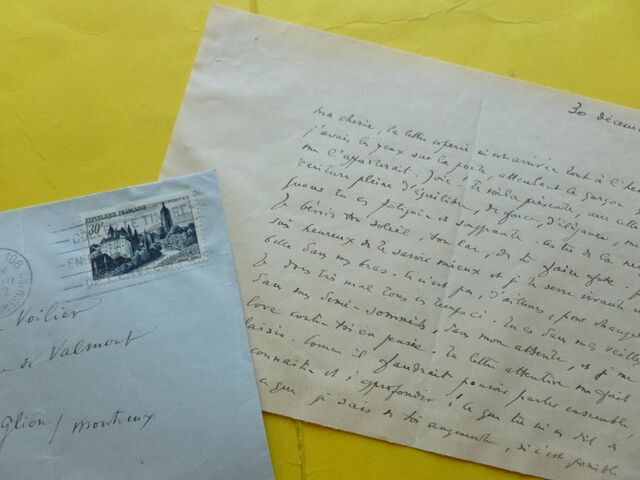 30 décem
Ma chérie, la lettre espérée m'est arrivée tout à l'he
j'avais les yeux sur la porte, attendant le garçon
me l'apporterait. Joie! Te voilà présente, avec cette
écriture pleine d'équilibre, de force, d'élégance, m
quand tu es fatiguée et souffrante
Je bénis ton soleil, ton lac, de
suis heureux de te savoir mieux et je te serre vivante
belle dans mes bras. Ce n'est pas, d'ailleurs, pour changer
Je dors très mal tous ces temps-ci. Tu es dans mes veilles
dans mes demi-sommeils, dans mon attente, et je me
love contre toi en pensée. Ta lettre attentive me fait
plaisir. Comme il faudrait pouvoir parler ensemble,
connaître et s'approfondir! Ce que tu m'en dis
ce que je sais de toi augmente, si c'est possible
RÉPUBLIQUE FRANÇAISE
POSTES
30F
106
Voilier
de Valmont
Glion / Montreux